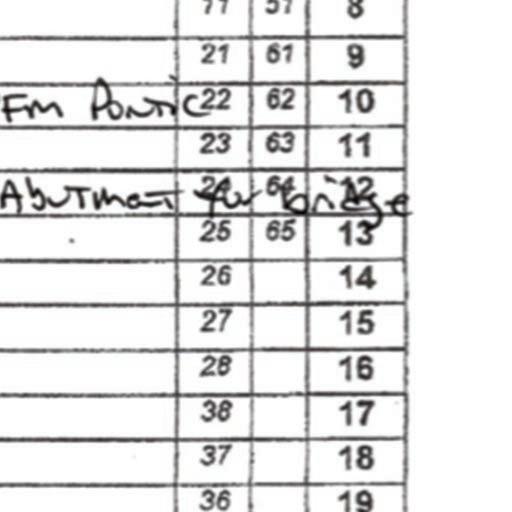 57 8
21 61 9
Fm Pontic 22 62 10
23 63 11
Abutment for bridge 24 64 12
25 65 13
26 14
27 15
28 16
38 17
37 18
36 19